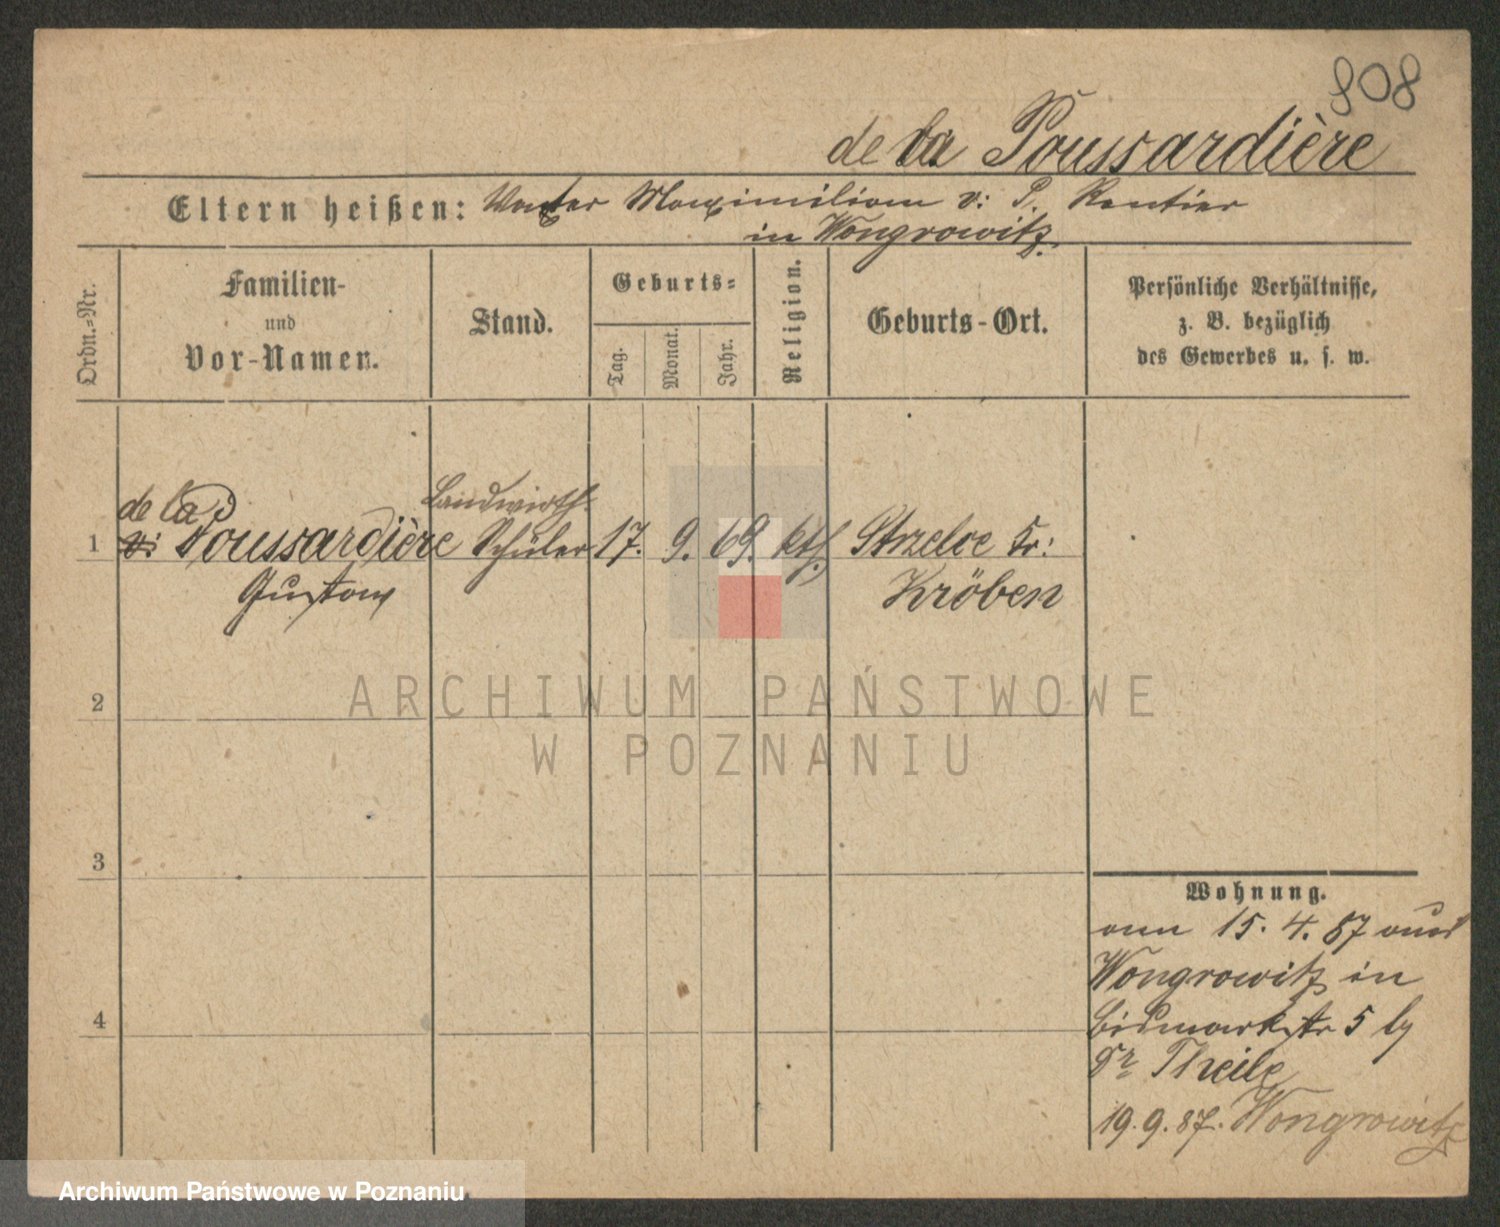 808
de la Poussardière
Eltern heißen: Vater Maximilian v: P. Rentier
in Wongrowitz.
Ordn.=Nr.
Familien-
und
Vor-Namen.
Stand.
Geburts=
Tag.
Monat.
Jahr.
Religion.
Geburts-Ort.
Persönliche Verhältnisse,
z. B. bezüglich
des Gewerbes u. s. w.
de la Landwirth-
1 v: Poussardière Schüler 17. 9. 69. kth. Strzelce Kr:
Gustav Kröben
ARCHIWUM PAŃSTWOWE
W POZNANIU
2
3
4
Wohnung.
am 15. 4. 87 aus
Wongrowitz in
Bismarkstr 5 by
Dr Theile
19. 9. 87. Wongrowitz
Archiwum Państwowe w Poznaniu